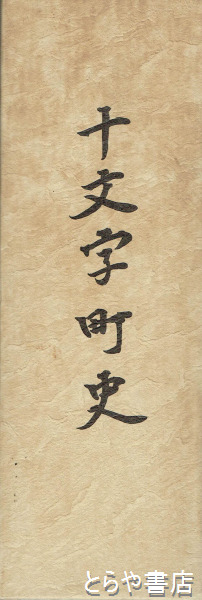 十文字町史
とらや書店